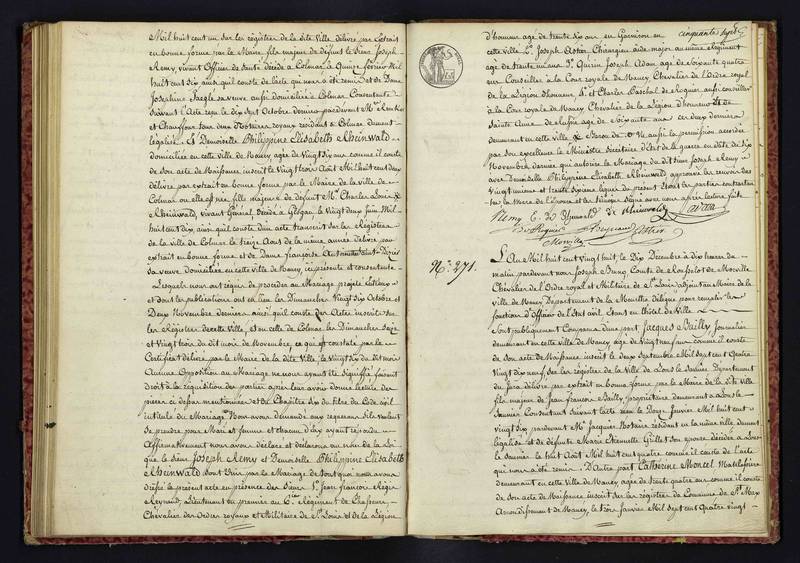 Mil huit cent un sur les registres de la dite Ville délivré par Extrait
en bonne forme par le Maire fils majeur de défunt le Sieur Joseph
Remy, vivant Officier de Santé décédé à Colmar le Quinze février Mil
huit cent dix ainsi qu'il conste de l'acte qui nous a été remis et de Dame
Josephine Jaeglé sa veuve aussi domiciliée à Colmar Consentante
suivant Acte reçu le dix Sept Octobre dernier pardevant Me
et Chauffour son Notaires royaux résidant à Colmar dument
légalisé Et Demoiselle Philippine Elisabeth Rheinwald
domiciliée en cette ville de Nancy, agée de Vingt dix ans comme il conste
de son acte de Naissance inscrit le Vingt trois Août Mil huit cent deux
délivré par extrait en bonne forme par le Maire de la ville de
Colmar où elle est née fille majeure de défunt Mr. Charles Louis
Rheinwald, vivant Général, décédé à Glogau, le Vingt deux Juin Mil
huit cent dix, ainsi qu'il conste d'un acte transcrit sur les Registres
de la ville de Colmar le treize Août de la même année délivré par
extrait en bonne forme et de Dame françoise
sa veuve domiciliée en cette ville de Nancy ici présente et consentante
Lesquels nous ont requis de procéder au Mariage projeté entr'eux
et dont les publications ont eu lieu les Dimanches Vingt six Octobre et
Deux Novembre dernier ainsi qu'il conste des Actes inscrits sur
les Registres de cette Ville, et en celle de Colmar les Dimanches Seize
et Vingt trois du dit mois de Novembre, ce qui est constaté par le
Certificat délivré par le Maire de la dite Ville le Vingt dix du dit mois
Aucune Opposition au Mariage ne nous ayant été signifiée faisant
droit à la réquisition des parties après leur avoir donné lecture des
pièces ci dessus mentionnées et du Chapitre six du titre du Code civil
intitulé du Mariage Nous avons demandé aux requérans s'ils veulent
se prendre pour Mari et femme et chacun d'eux ayant répondu
Affirmativement nous avons déclaré et déclarons au nom de la Loi
que le Sieur Joseph Remy et Demoiselle Philippine Elisabeth
Rheinwald Sont Unis par le Mariage de Tout quoi nous avons
dressé le présent acte en présence des Sieurs Sr. Jean françois Régis
Reynaud, Lieutenant en premier au 6me Régiment de Chasseurs,
Chevalier des Ordres royaux et Militaire de St. Louis et de la Légion
cinquante sept
d'honneur agé de trente dix ans en Garnison en
cette ville Sr. Joseph Astier Chirurgien aide major au même Régiment
agé de trente un ans Sr. Quirin Joseph Adam agé de Soixante quatre
ans Conseiller à la Cour royale de Nancy Chevalier de l'Ordre royal
de la Légion d'honneur, Sr. et Charles Paschal de Roguier aussi conseiller
à la Cour royale de Nancy Chevalier de la Légion d'honneur et de
Sainte Anne de Russie agé de Soixante ans ces deux derniers
demeurant en cette ville Vu aussi la permission accordée
par son excellence le Ministre Secrétaire d'état de la guerre en date du dix
Novembre dernier qui autorise le Mariage du dit Sieur Joseph Remy
avec Demoiselle Philippine Elisabeth Rheinwald approuvé les renvois des
Vingt unième et trente sixième lignes du présent Et ont les parties contractantes
la Mère de l'Epouse et les témoins Signé avec nous après lecture faite
Remy E. de Rheinwald
De Roguier Reynaud Astier
Morville
No. 271.
L'An Mil huit cent vingt huit, le Dix Décembre à dix heures du
matin, pardevant nous Joseph Bruno, Comte de Rousselot de Morville
Chevalier de l'Ordre royal et Militaire de St. Louis, adjoint au Maire de la
ville de Nancy Département de la Meurthe délégué pour remplir les
fonctions d'Officier de l'Etat civil, étant en l'hôtel de Ville
Sont publiquement Comparus d'une part Jacques Bailly, journalier
demeurant en cette ville de Nancy agé de Vingt neuf ans comme il conste
de son Acte de Naissance inscrit le deux Septembre Mil Sept cent Quatre
Vingt dix neuf sur les registres de la Ville de Lons le Saunier Département
du Jura délivré par extrait en bonne forme par le Maire de la dite ville
fils majeur de Jean françois Bailly, propriétaire demeurant à Lons le
Saunier Consentant Suivant l'acte reçu le Douze Janvier Mil huit cent
vingt dix pardevant Me. Jacquier Notaire résidant en la même ville dument
légalisé et de défunte Marie Etiennette Gillet Son épouse décédée à Lons
le Saunier le huit Août Mil huit cent quatre comme il conste de l'acte
qui nous a été remis. D'autre part Catherine Moncel Matelassière
demeurant en cette Ville de Nancy, agée de trente quatre ans comme il conste
de son acte de Naissance inscrit sur les registres de la Commune de St. Max
Arrondissement de Nancy, le trois Janvier Mil Sept cent quatre vingt